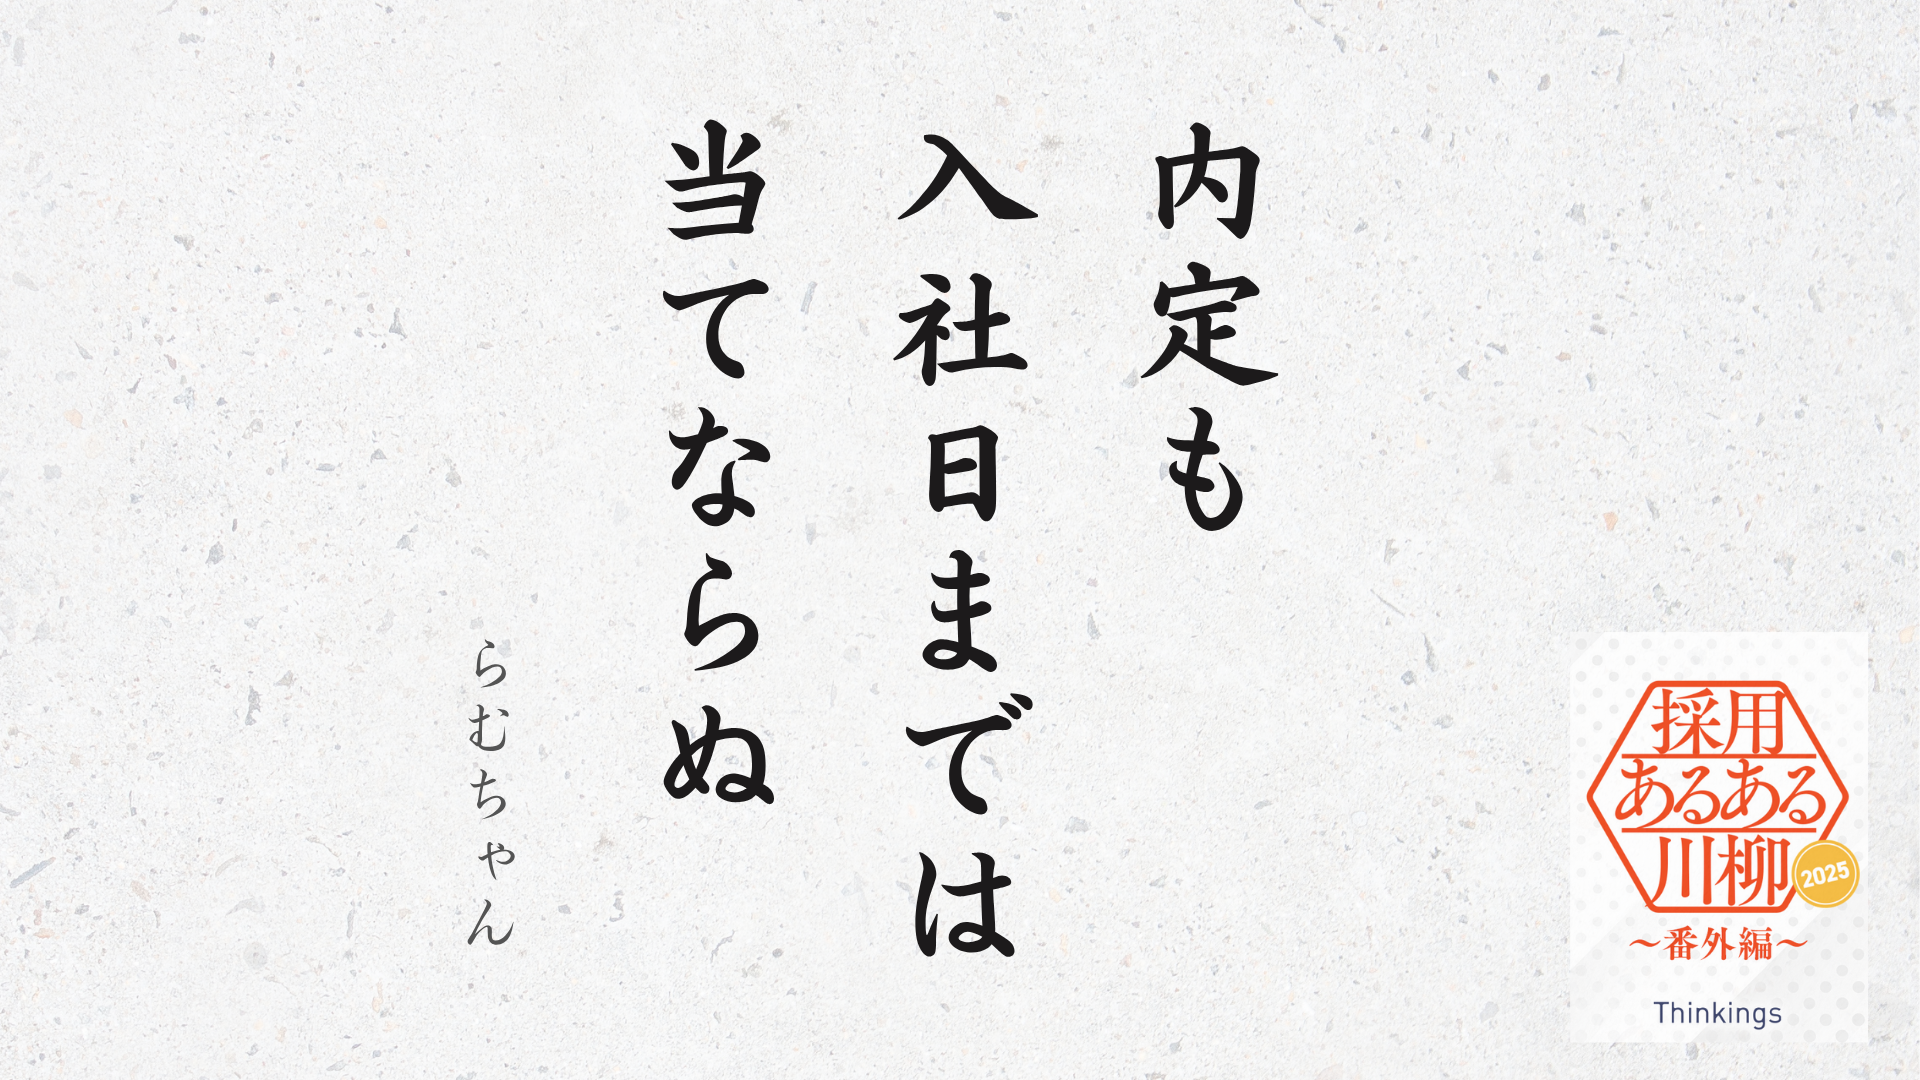 内定も
入社日までは
当てならぬ
らむちゃん
採用
あるある
川柳
2025
～番外編～
Thinkings